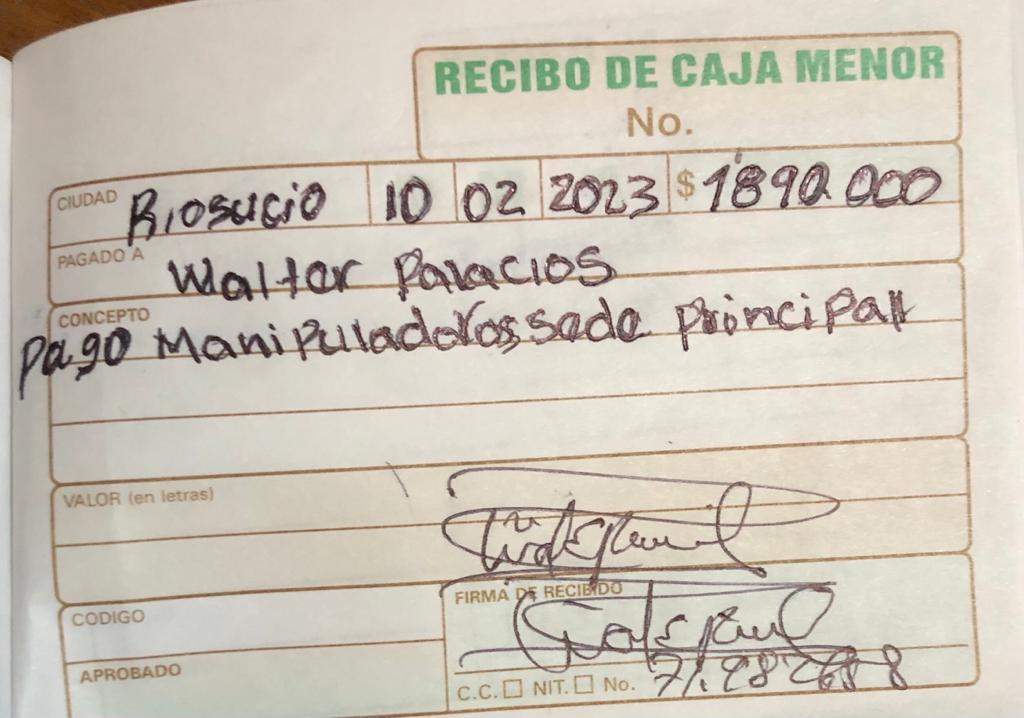 RECIBO DE CAJA MENOR
No.
CIUDAD Riosucio 10 02 2023 $ 1'890.000
PAGADO A Walter Palacios
CONCEPTO
Pago Manipuladoras sede principal
VALOR (en letras)
CODIGO
FIRMA DE RECIBIDO
APROBADO
C.C. NIT. No.